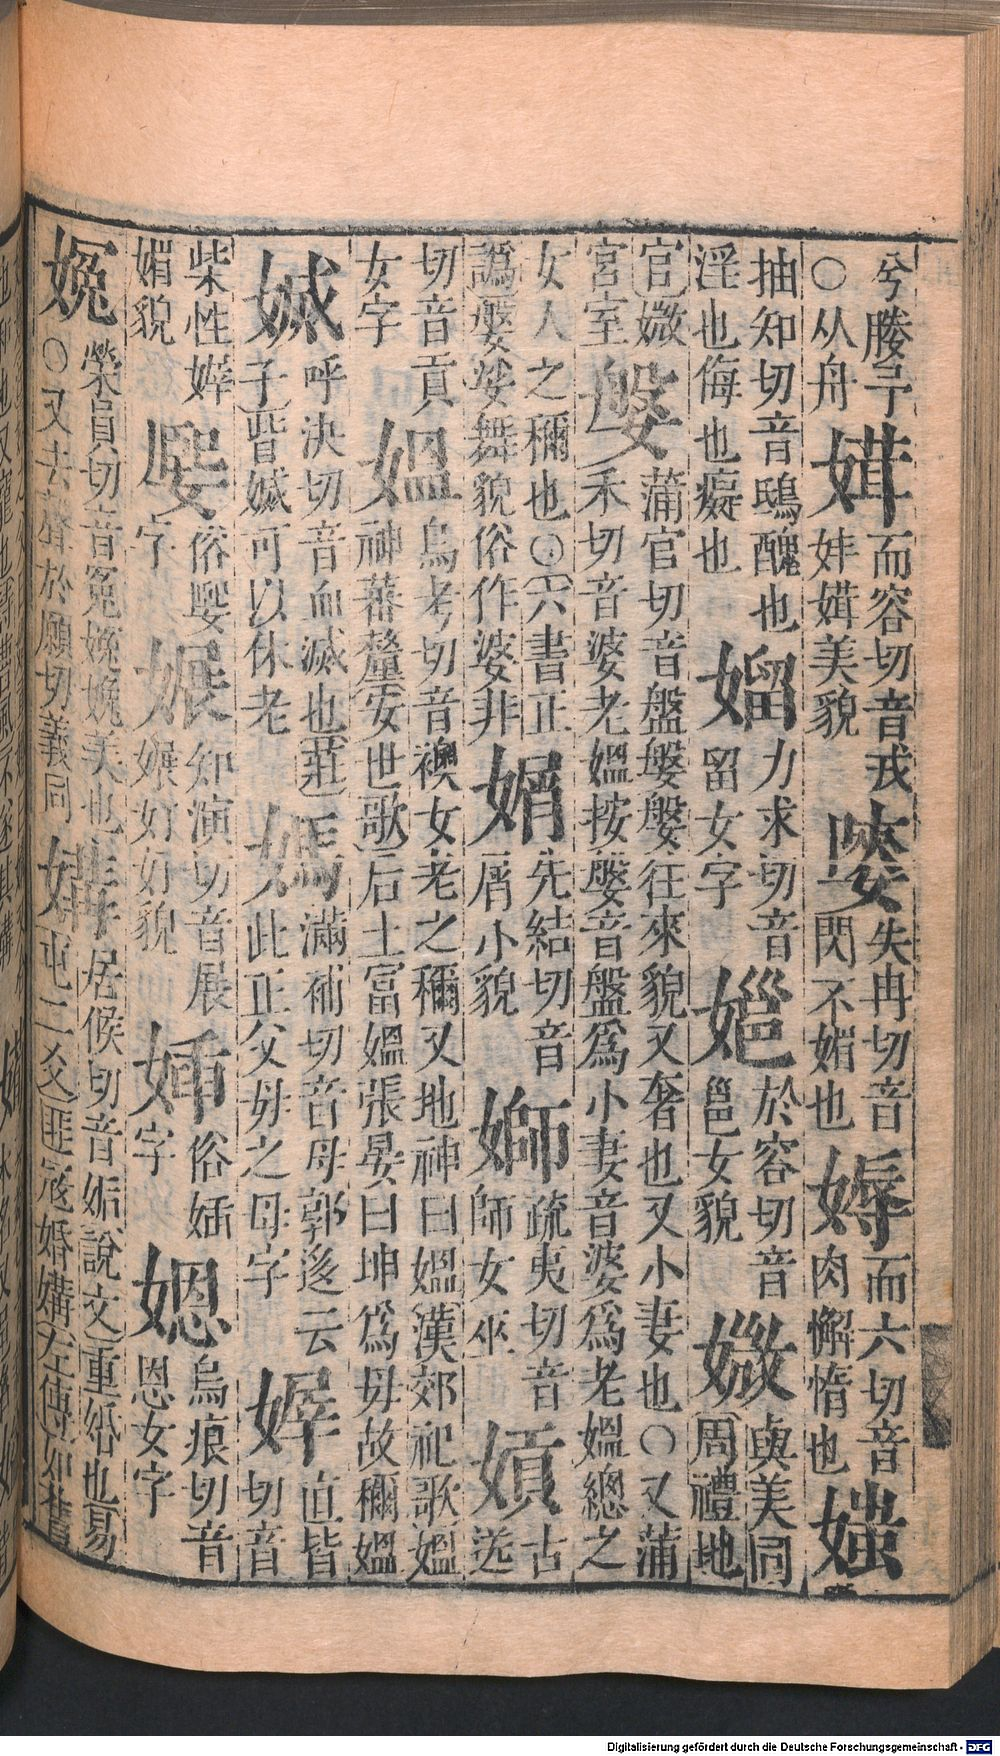 兮媵予
○从舟
媶
而容切音戎
妦媶美貌
㛮
失冉切音
閃不媚也
媷
而六切音
肉懈惰也
媸
抽知切音鴟醜也
淫也侮也癡也
媹
力求切音
留女字
㜇
於容切音
邕女貌
媺
與美同
周禮地
官媺
宮室
媻
蒲官切音盤媻媻往來貌又奢也又小妻也○又蒲
禾切音婆老媼按媻音盤爲小妻音婆爲老媼總之
女人之稱也○六書正
譌媻娑舞貌俗作婆非
㛕
先結切音
屑小貌
㛭
疏夷切音
師女巫
㜏
古送
切音貢
女字
媼
烏考切音襖女老之稱又地神曰媼漢郊祀歌媼
神蕃釐安世歌后土富媼張晏曰坤爲母故稱媼
㜅
呼決切音血滅也莊
子眥㜅可以休老
媽
滿補切音母郭迻云
此正父母之母字
㛸
直皆
切音
柴性㛸
媚貌
㜎
俗嫛
字
㜊
知演切音展
㜊好好貌
㛼
俗㛼
字
㤙
烏痕切音
恩女字
婏
縈員切音冤婏婏美也
○又去聲於願切義同
媾
居候切音姤說文重婚也易
屯二爻匪寇婚媾左傳如舊
Digitalisierung gefördert durch die Deutsche Forschungsgemeinschaft - DFG